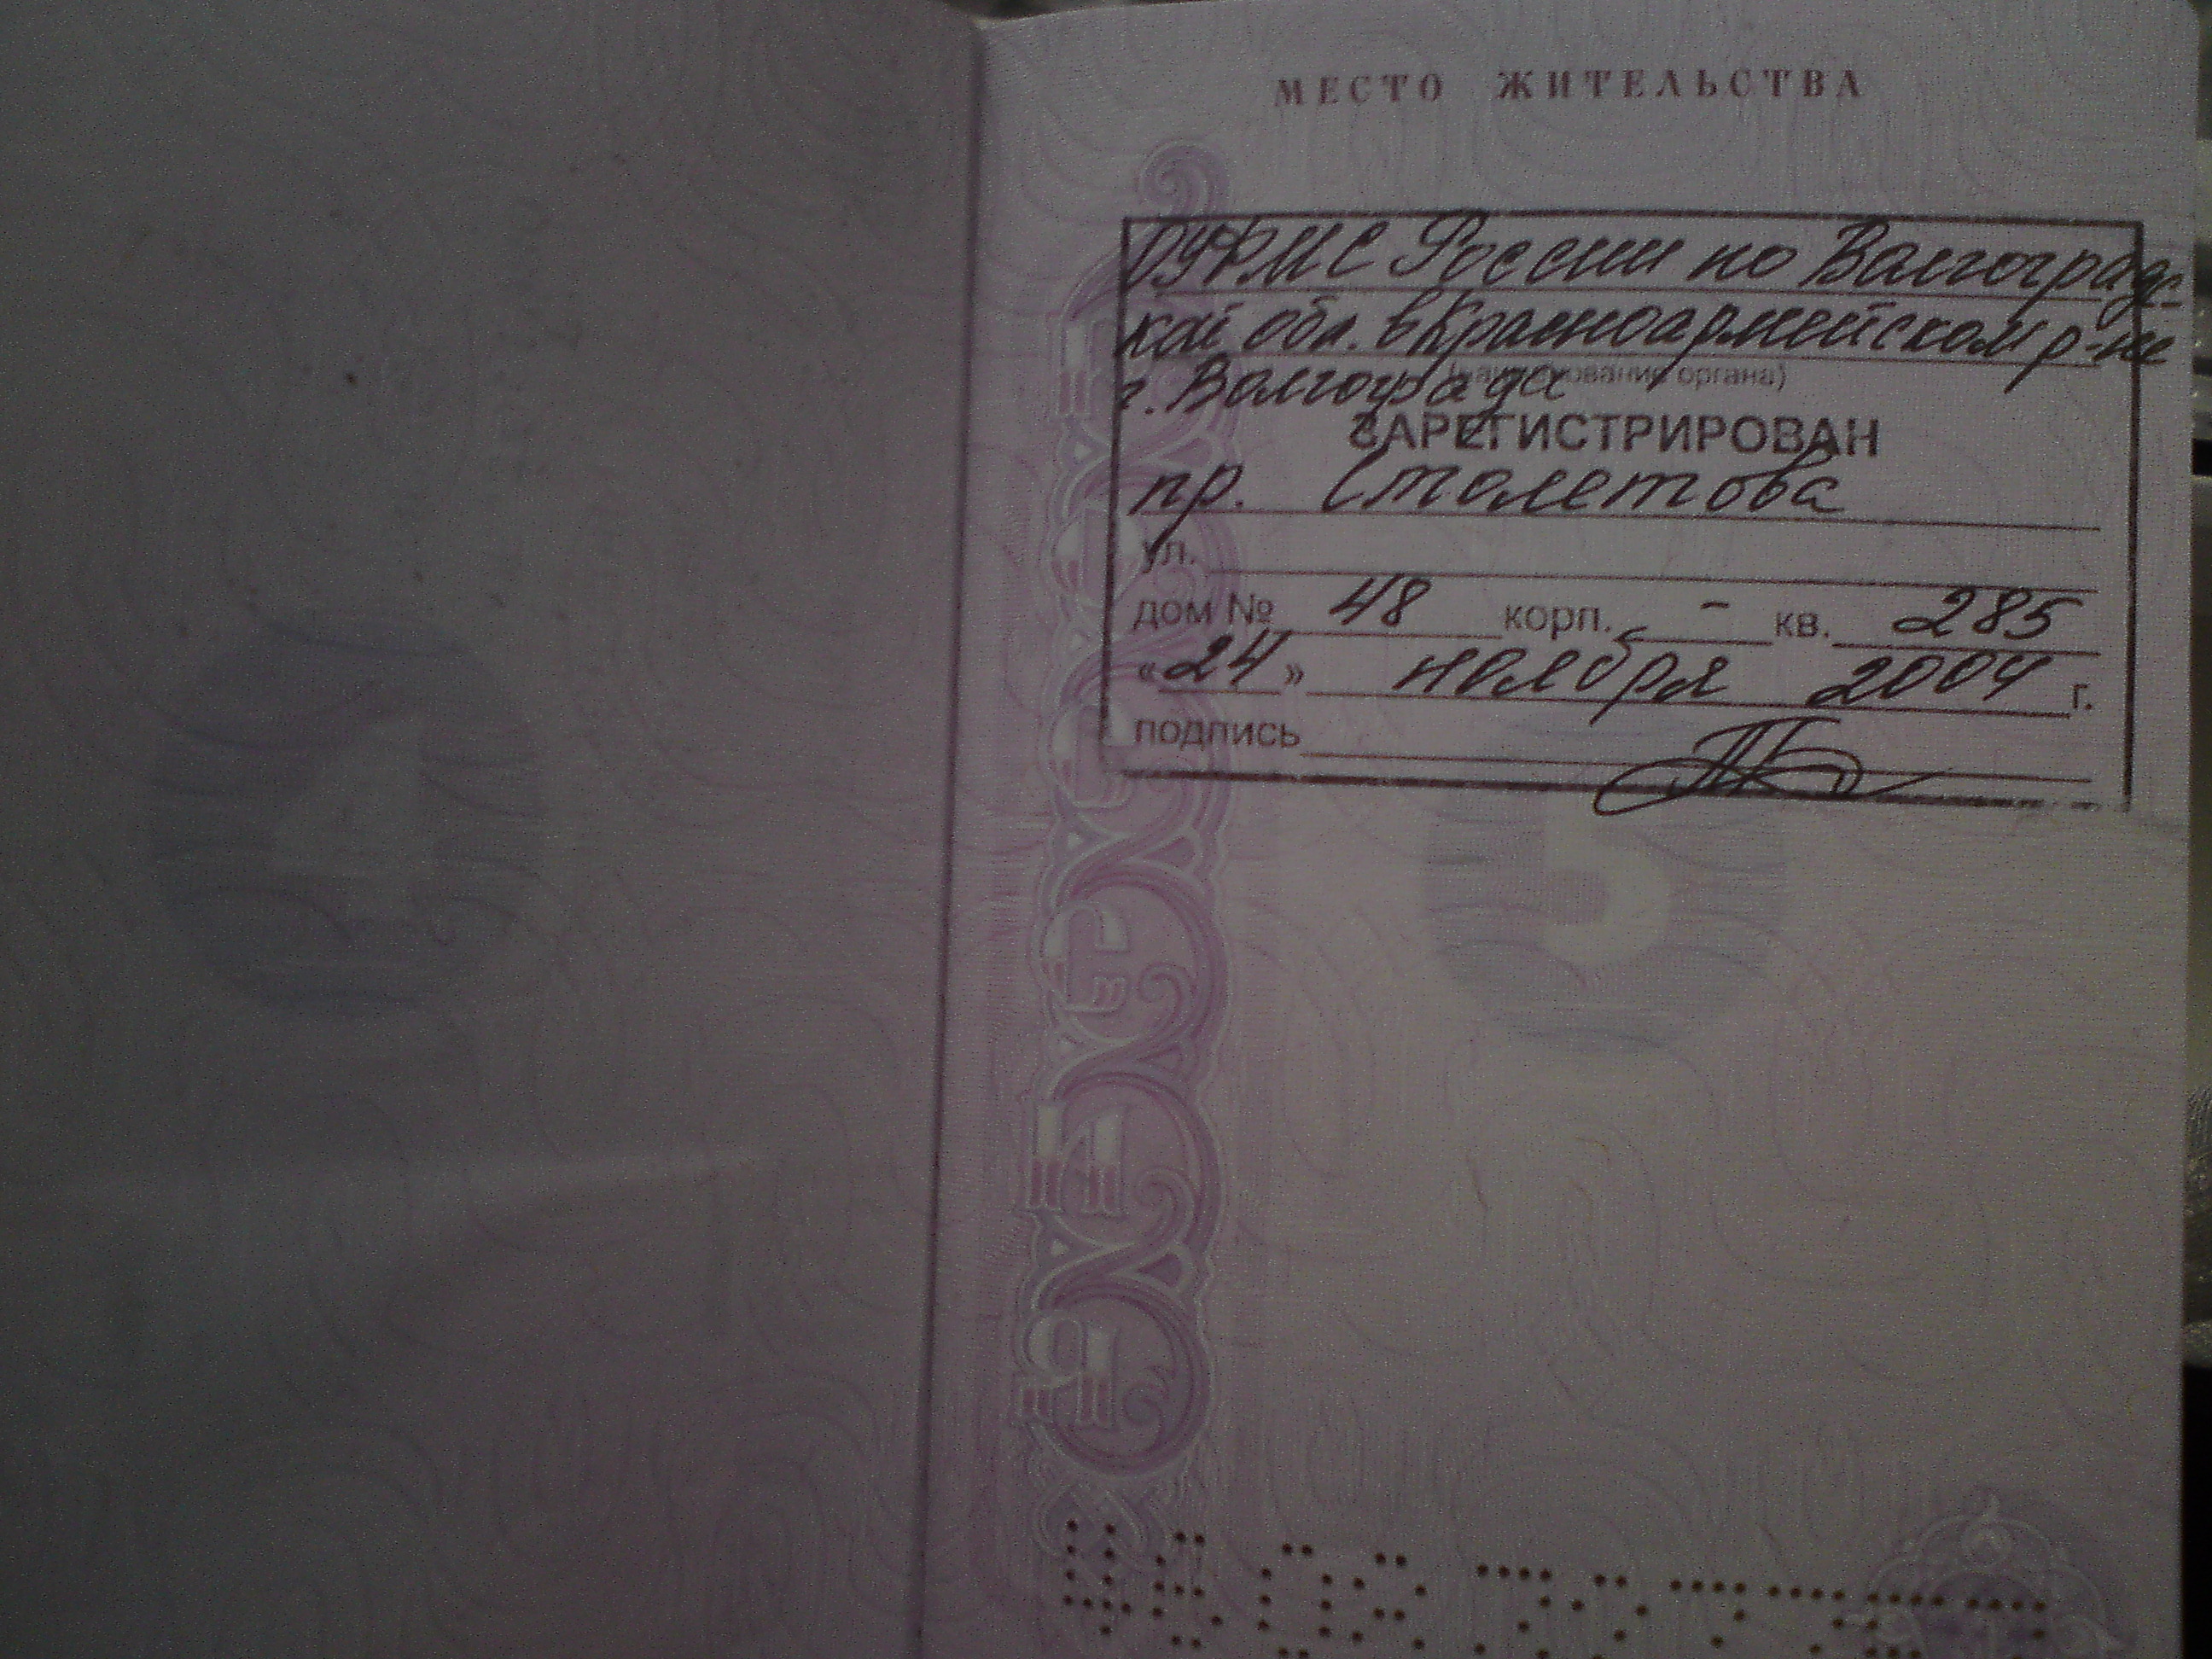 МЕСТО ЖИТЕЛЬСТВА
ОУФМС России по Волградс-
кой обл. в Красноармейском р-не
(наименование органа)
г. Волгограда
ЗАРЕГИСТРИРОВАН
пр. Столетова
ул.
дом № 48 корп. - кв. 285
«24» ноября 2004 г.
подпись